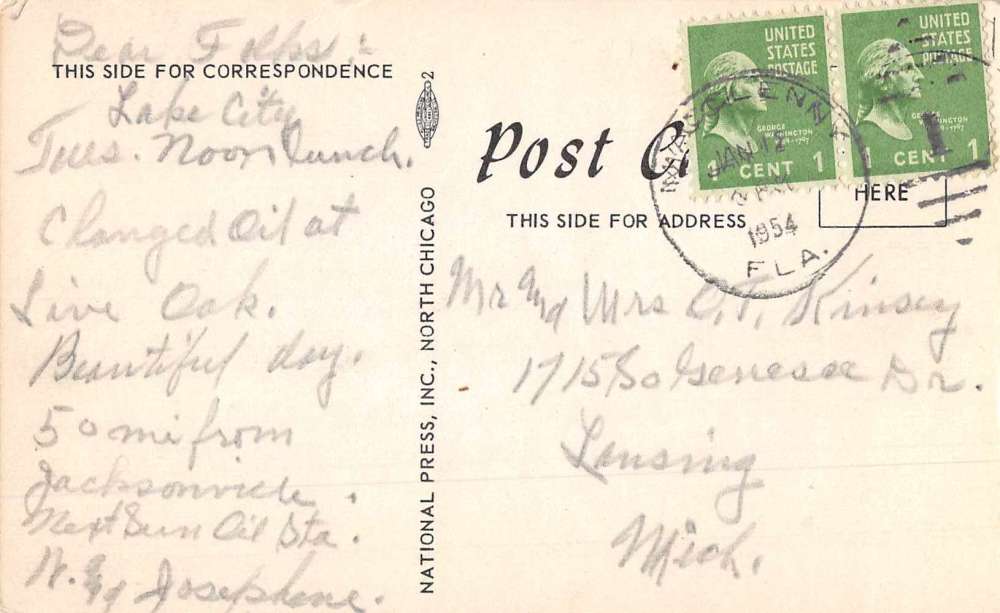 Dear Folks:
THIS SIDE FOR CORRESPONDENCE
Lake City
Tues. Noon lunch.
Changed Oil at
Live Oak.
Beautiful day.
50 mi from
Jacksonville.
Next Sun Oil Sta.
Josephine.
NATIONAL PRESS, INC., NORTH CHICAGO
2
Post
THIS SIDE FOR ADDRESS
HERE
UNITED
STATES
POSTAGE
GEORGE
WASHINGTON
1 CENT 1
UNITED
STATES
POSTAGE
GEORGE
WASHINGTON
1 CENT 1
MACCLENNY
JAN 12
1954
FLA.
Mr and Mrs C.F. Kinsey
1715 So Genesee Dr.
Lansing
Mich.